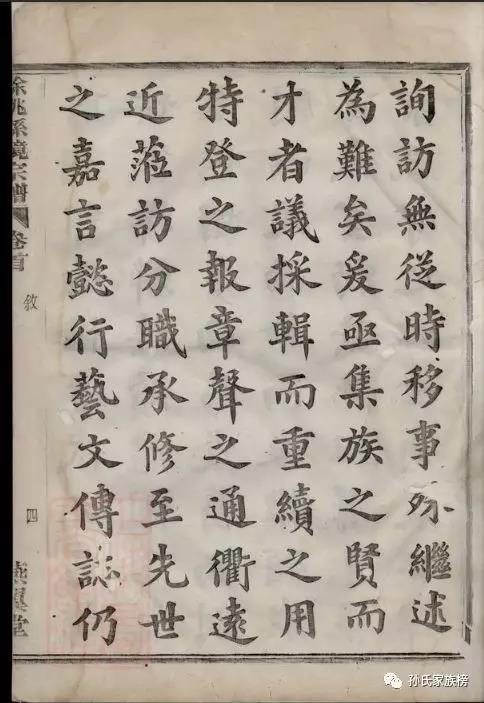 詢訪無從時移事殊繼述
為難矣爰亟集族之賢而
才者議採輯而重續之用
特登之報章聲之通衢遠
近蒞訪分職承修至先世
之嘉言懿行藝文傳誌仍
餘姚孫境宗譜 卷首 敘 四 燕翼堂
孙氏家族榜